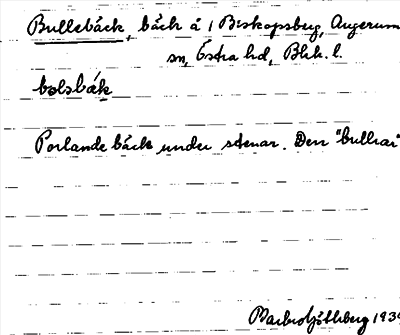 Bullebäck, bäck å 1 Biskopsberg, Augerum
sn, Östra hd, Blek. l.
bɘlsbæk
Porlande bäck under stenar. Den "bullrar"
Göthberg 193